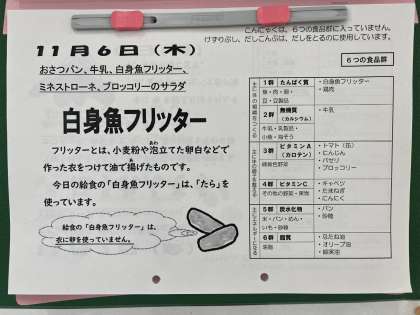 こんにゃくは、6つの食品群に入っていません。
けずりぶし、だしこんぶは、だしをとるのに使用しています。
11月6日（木）
おさつパン、牛乳、白身魚フリッター、
ミネストローネ、ブロッコリーのサラダ
白身魚フリッター
フリッターとは、小麦粉や泡立てた卵白などで
作った衣をつけて油で揚げたものです。
今日の給食の「白身魚フリッター」は、「たら」を
使っています。
給食の「白身魚フリッター」は、
衣に卵を使っていません。
6つの食品群
1群 たんぱく質
魚・肉・卵・
豆・豆製品
・白身魚フリッター
・鶏肉
2群 無機質
（カルシウム）
牛乳・乳製品・
小魚・海そう
・牛乳
3群 ビタミンA
（カロテン）
緑黄色野菜
・トマト（缶）
・にんじん
・パセリ
・ブロッコリー
4群 ビタミンC
その他の野菜・果物
・キャベツ
・たまねぎ
・にんにく
5群 炭水化物
米・パン・めん・
いも・砂糖
・パン
・砂糖
6群 脂質
油脂
・オリーブ油